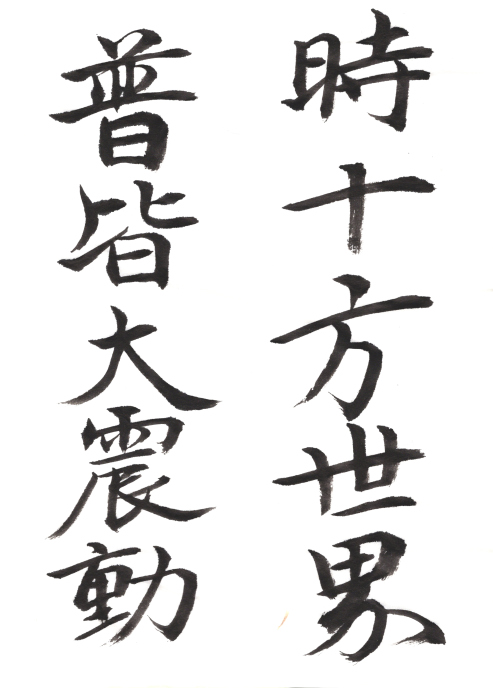 時十方世界
普皆大震動